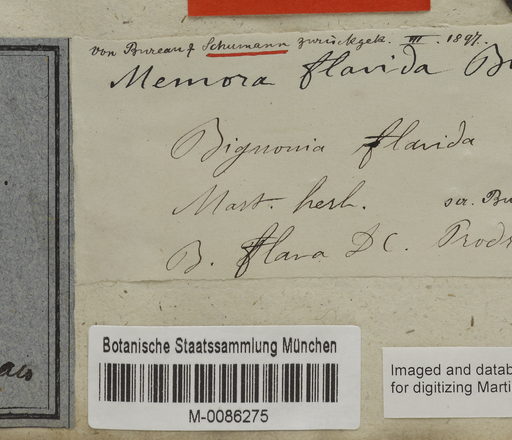 von Bureau & Schumann zurückgek. III. 1897.
Memora flavida
Bignonia flavida
Mart. herb.
B. flava DC. Prodr
Botanische Staatssammlung München
M-0086275
Imaged and datab
for digitizing Marti